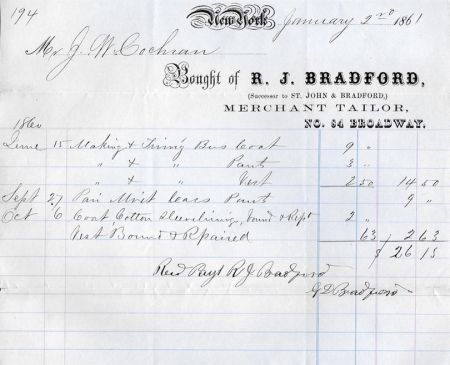 194
New York January 2nd 1861
Mr J. W. Cochran
Bought of R. J. BRADFORD,
(Successor to ST. JOHN & BRADFORD,)
MERCHANT TAILOR,
NO. 64 BROADWAY.
1860
June 15 Making & Trim'g Bus Coat 9 "
" & " Pants 3 "
" & " Vest 2 50 14 50
Sept 27 Pair Pants 9 "
Oct 6 Coat Cotton Sleevelining, bound & Rept 2 "
Vest Bound & Repaired 63 2 63
$ 26 13
Recd Payt R J Bradford
G D Bradford